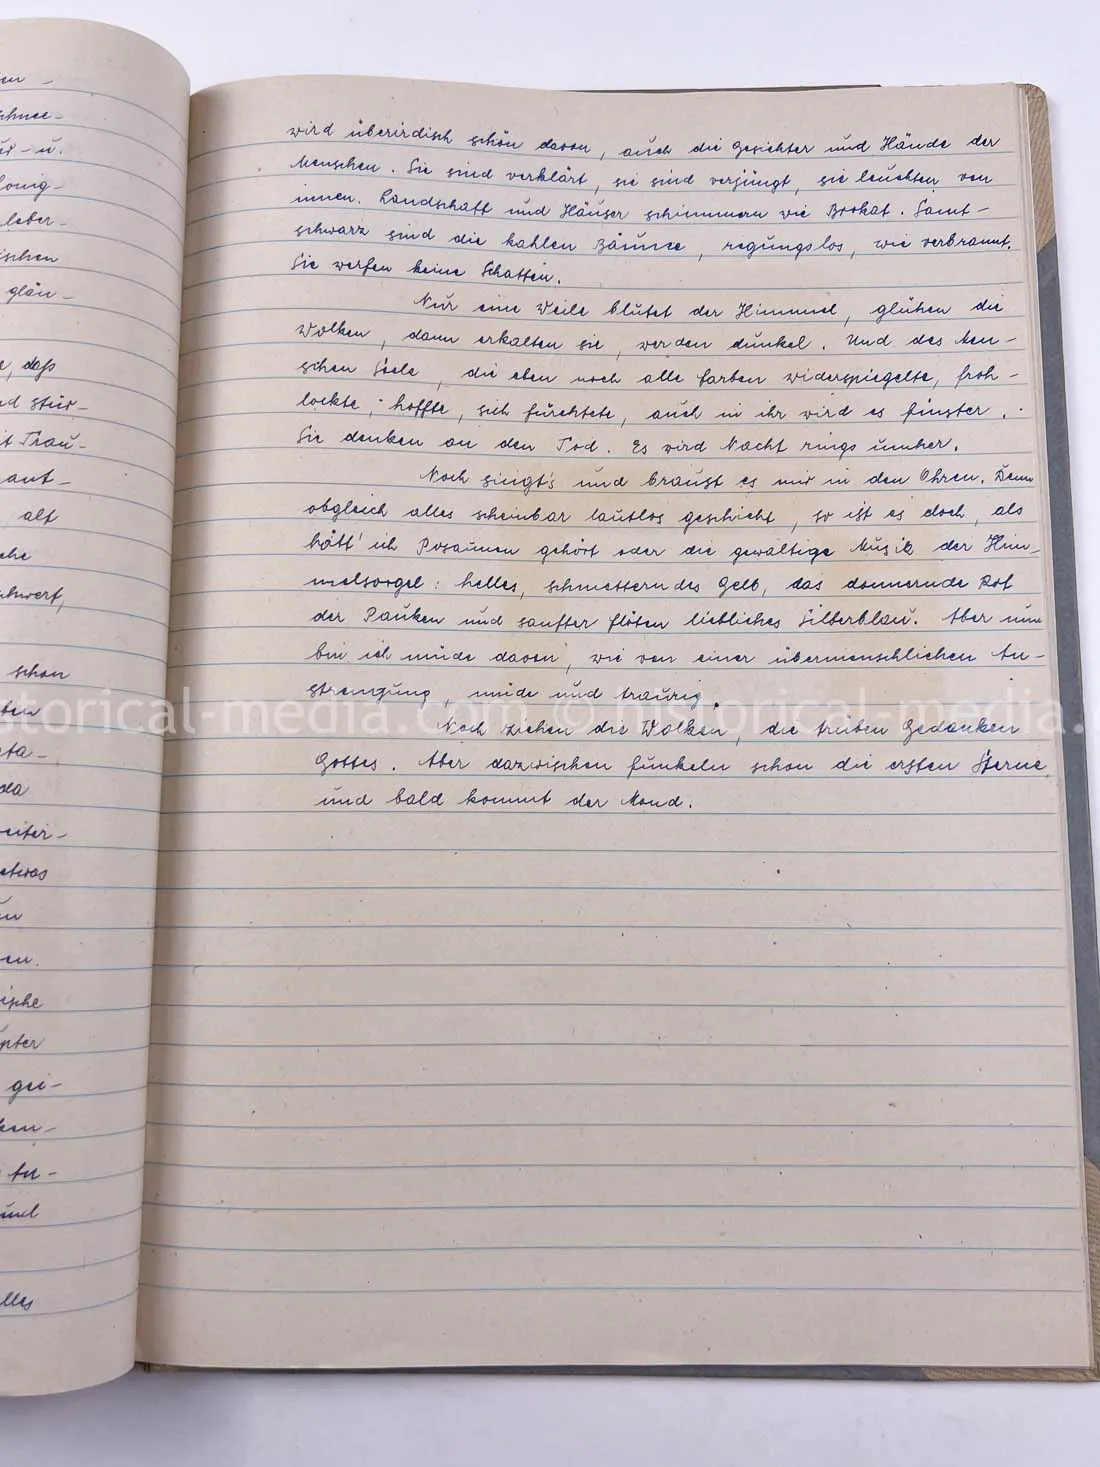 en -
schnee-
ur - u.
König-
leber-
ischen
glän -
e, daß
nd stür-
it Trau-
aut -
, alt
che
hwert,
schon
ten
ta-
da
eiter-
etwas
un
en.
ische
pter
gei-
ken-
An-
und
lles
wird überirdisch schön davon, auch die Gesichter und Hände der
Menschen. Sie sind verklärt, sie sind verjüngt, sie leuchten von
innen. Landschaft und Häuser schimmern wie Brokat. Samt-
schwarz sind die kahlen Bäume, regungslos, wie verbrannt.
Sie werfen keine Schatten.
Nur eine Weile blutet der Himmel, glühen die
Wolken, dann erkalten sie, werden dunkel. Und des Men-
schen Seele, die eben noch alle Farben widerspiegelte, froh-
lockte, hoffte, sich fürchtete, auch in ihr wird es finster.
Sie denken an den Tod. Es wird Nacht rings umher.
Noch singt's und braust es mir in den Ohren. Denn
obgleich alles scheinbar lautlos geschieht, so ist es doch, als
hätt' ich Posaunen gehört oder die gewaltige Musik der Him-
melsorgel: helles, schmetterndes Gelb, das donnernde Rot
der Pauken und sanfter Flöten liebliches Silberblau. Aber nun
bin ich müde davon, wie von einer übermenschlichen An-
strengung, müde und traurig.
historical-media.com © historical-media.
Noch ziehen die Wolken, die trüben Gedanken
Gottes. Aber dazwischen funkeln schon die ersten Sterne,
und bald kommt der Mond.